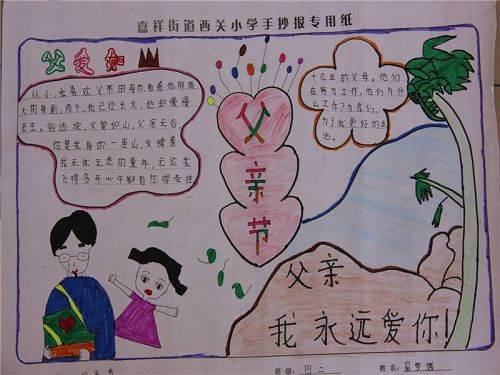 嘉祥街道西关小学手抄报专用纸
父爱如山
从小,长喜欢父亲的身边,看着他那高
大的身躯,而今,我已经长大,他却慢慢
老去。俗话说,父爱如山,父亲无言,
您是我身的一座山,支撑着
我无忧无虑的童年,无论我
飞得多开心中都有您得牵挂
父
亲
节
十几年的父母。他们
在努力工作,他们为什
么工作?为我们,
为了我更好的生
活。
父亲
我永远爱你!
班级:四二
姓名: